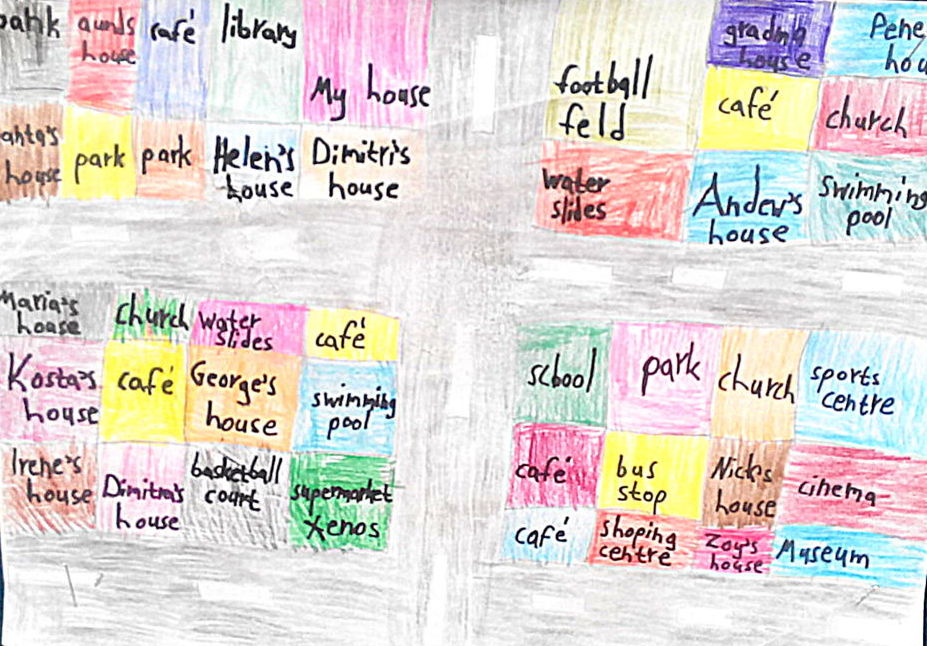 bank
aunds
house
café
library
My house
park
park
Helen's
house
Dimitri's
house
football
feld
gradma
house
café
church
water
slides
Andew's
house
swimming
pool
Maria's
house
church
water
slides
café
Kosta's
house
café
George's
house
swimming
pool
Irene's
house
Dimitra's
house
basketball
court
supermarket
xenos
school
park
church
sports
centre
café
bus
stop
Nick's
house
cinema
café
shoping
centre
Zoy's
house
Museum